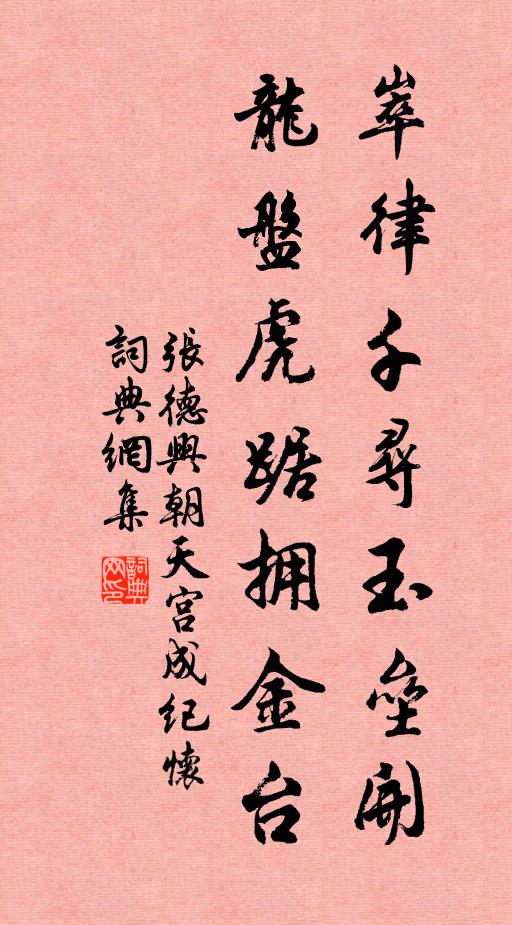 崒律千尋玉壘開
龍盤虎踞拥金台
張德興朝天宫成紀懷
詞典網集
詞典网印